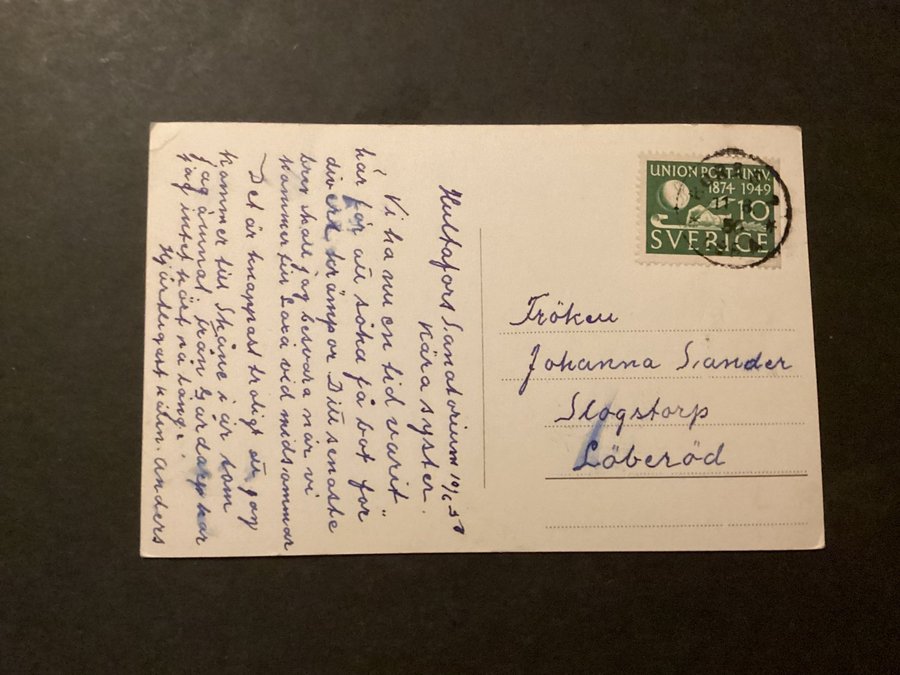 Hultafors Sanatorium 10/6 50
Kära syster.
Vi ha nu en tid varit
här för att söka få bot för
divers krämpor Ditt senaste
brev skall jag besvara när vi
kommer till Sara vid midsommar
Det är knappast troligt att jag
kommer till Skåne i år som
jag ämnat. från Gårdarp har
jag intet hört så länge.
Hjärtligast häln. Anders
UNION POST. UNIV.
1874 1949
10
SVERIGE
Fröken
Johanna Sander
Slogstorp
Löberöd